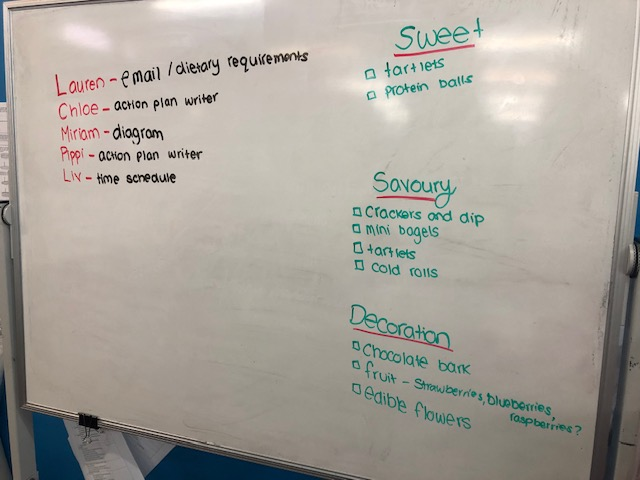 Lauren - email / dietary requirements
Chloe - action plan writer
Miriam - diagram
Pippi - action plan writer
Liv - time schedule
Sweet
tartlets
protein balls
Savoury
Crackers and dip
mini bagels
tartlets
cold rolls
Decoration
Chocolate bark
fruit - strawberries, blueberries,
raspberries?
edible flowers